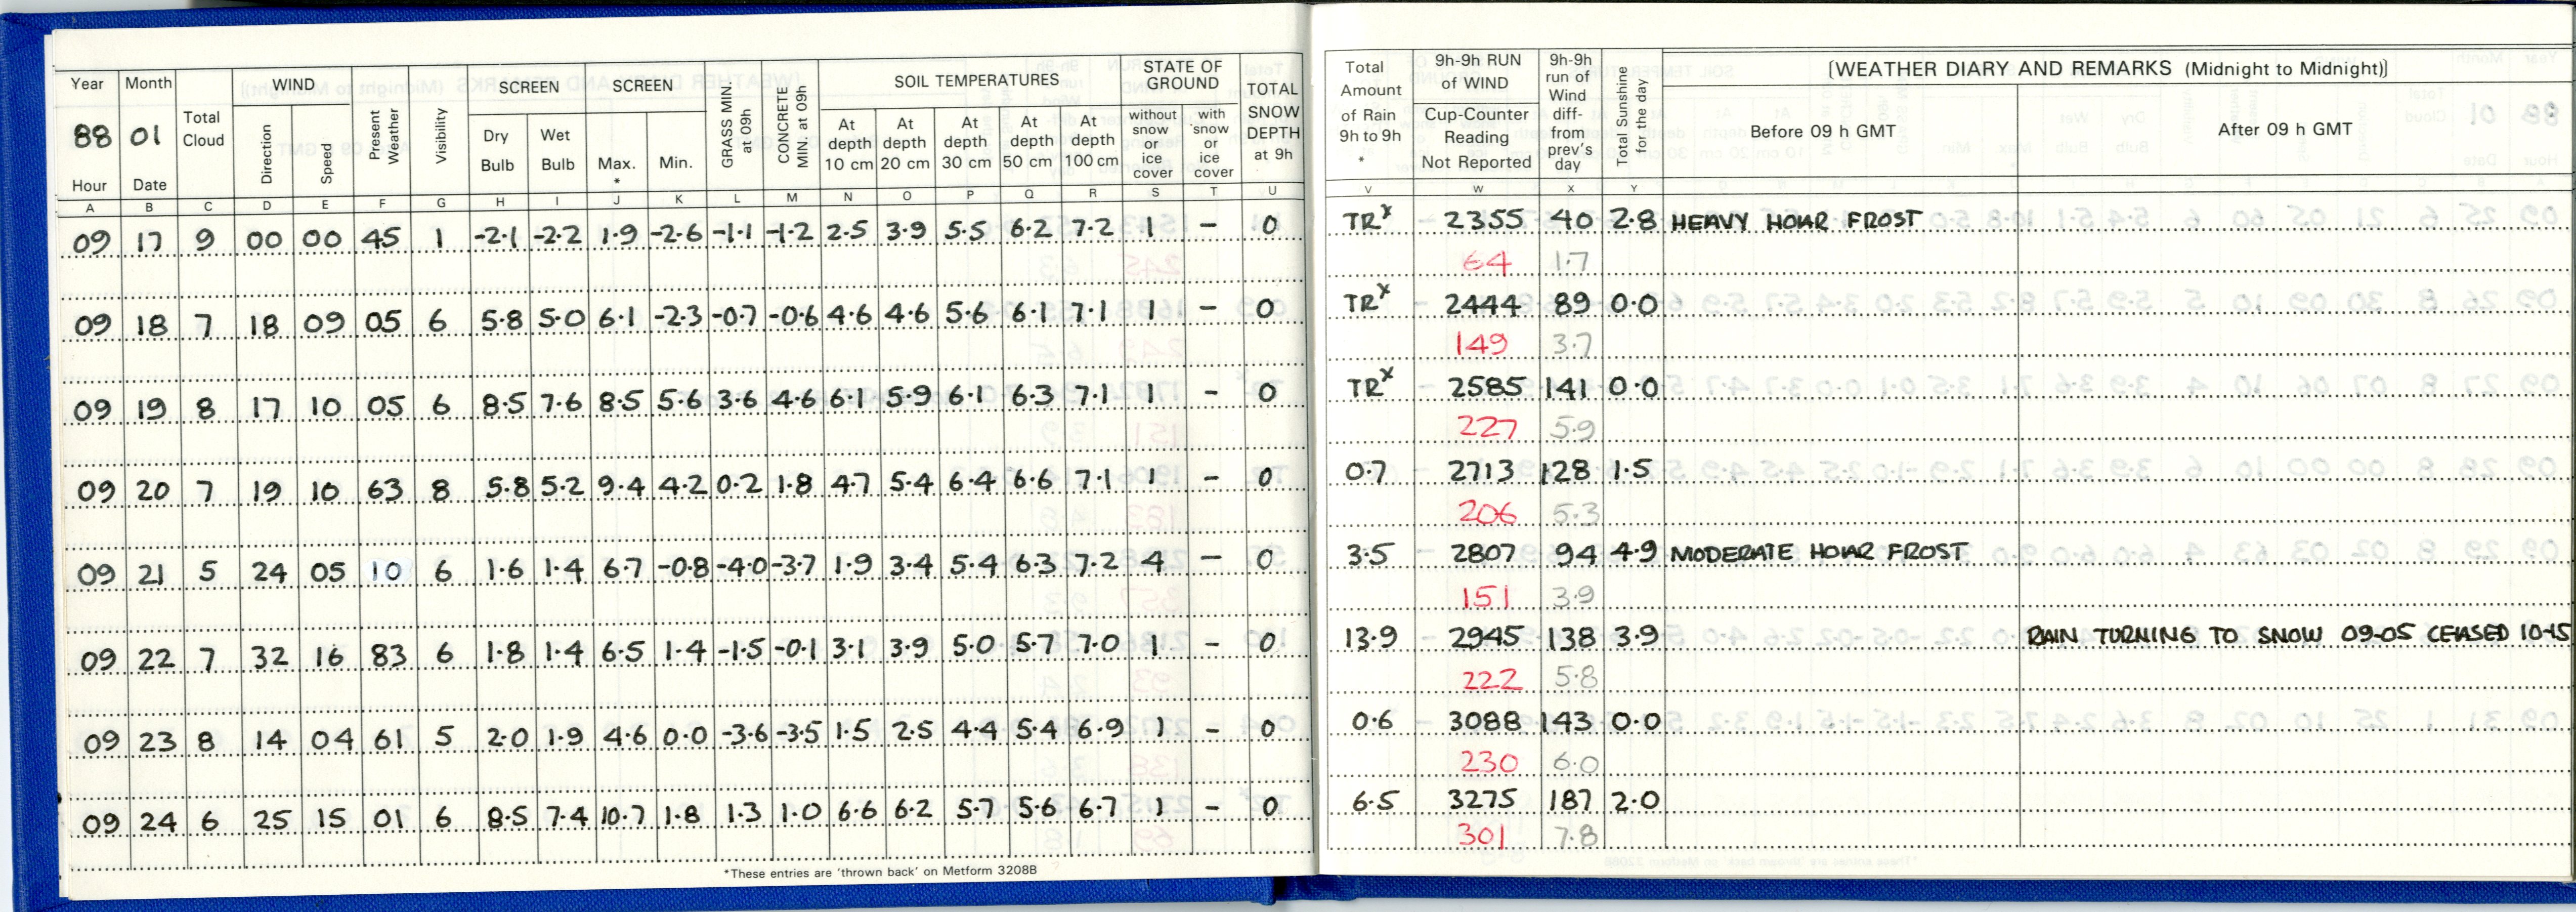 Year Month Total Cloud WIND Present Weather Visibility SCREEN SCREEN GRASS MIN. at 09h CONCRETE MIN. at 09h SOIL TEMPERATURES STATE OF GROUND TOTAL SNOW DEPTH at 9h
88 01 Direction Speed Dry Bulb Wet Bulb Max. * Min. At depth 10 cm At depth 20 cm At depth 30 cm At depth 50 cm At depth 100 cm without snow or ice cover with snow or ice cover
Hour Date
A B C D E F G H I J K L M N O P Q R S T U
09 17 9 00 00 45 1 -2.1 -2.2 1.9 -2.6 -1.1 -1.2 2.5 3.9 5.5 6.2 7.2 1 – 0
09 18 7 18 09 05 6 5.8 5.0 6.1 -2.3 -0.7 -0.6 4.6 4.6 5.6 6.1 7.1 1 – 0
09 19 8 17 10 05 6 8.5 7.6 8.5 5.6 3.6 4.6 6.1 5.9 6.1 6.3 7.1 1 – 0
09 20 7 19 10 63 8 5.8 5.2 9.4 4.2 0.2 1.8 4.7 5.4 6.4 6.6 7.1 1 – 0
09 21 5 24 05 10 6 1.6 1.4 6.7 -0.8 -4.0 -3.7 1.9 3.4 5.4 6.3 7.2 4 – 0
09 22 7 32 16 83 6 1.8 1.4 6.5 1.4 -1.5 -0.1 3.1 3.9 5.0 5.7 7.0 1 – 0
09 23 8 14 04 61 5 2.0 1.9 4.6 0.0 -3.6 -3.5 1.5 2.5 4.4 5.4 6.9 1 – 0
09 24 6 25 15 01 6 8.5 7.4 10.7 1.8 1.3 1.0 6.6 6.2 5.7 5.6 6.7 1 – 0
*These entries are 'thrown back' on Metform 3208B
Total Amount of Rain 9h to 9h * 9h-9h RUN of WIND Cup-Counter Reading Not Reported 9h-9h run of Wind diff- from prev's day Total Sunshine for the day [WEATHER DIARY AND REMARKS (Midnight to Midnight)]
Before 09 h GMT After 09 h GMT
V W X Y
TRx 2355 40 2.8 HEAVY HOAR FROST
64 1.7
TRx 2444 89 0.0
149 3.7
TRx 2585 141 0.0
227 5.9
0.7 2713 128 1.5
206 5.3
3.5 2807 94 4.9 MODERATE HOAR FROST
151 3.9
13.9 2945 138 3.9 RAIN TURNING TO SNOW 09-05 CEASED 10-15
222 5.8
0.6 3088 143 0.0
230 6.0
6.5 3275 187 2.0
301 7.8